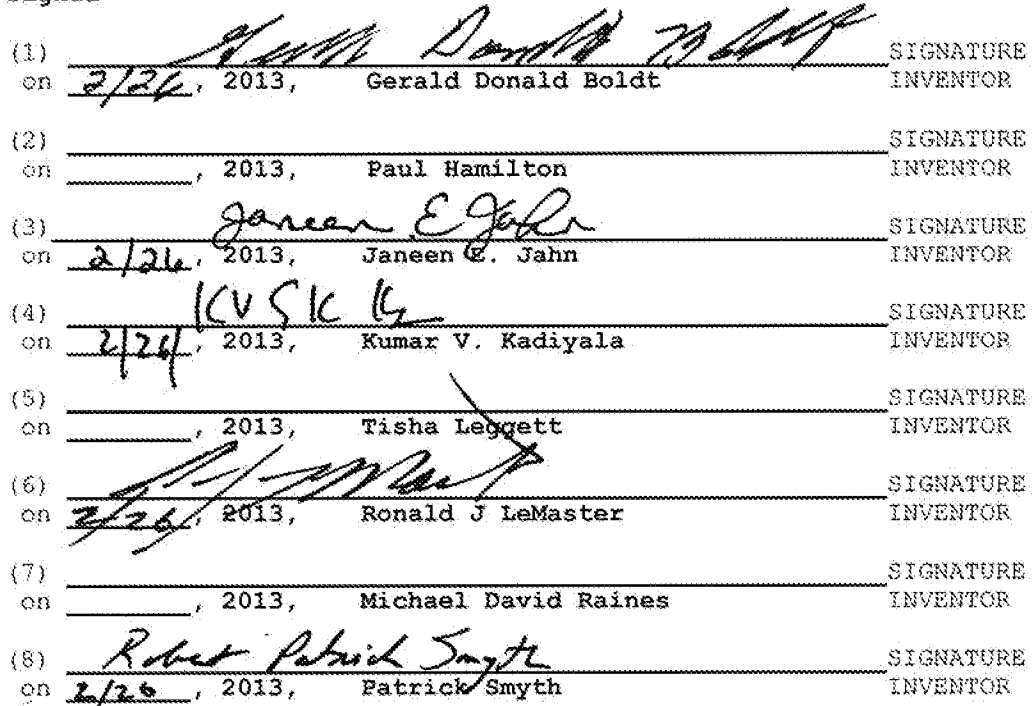 (1) Gerald Donald Boldt SIGNATURE
on 2/26, 2013, Gerald Donald Boldt INVENTOR
(2) SIGNATURE
on , 2013, Paul Hamilton INVENTOR
(3) Janeen E Jahn SIGNATURE
on 2/26, 2013, Janeen E. Jahn INVENTOR
(4) KVSK SIGNATURE
on 2/26/, 2013, Kumar V. Kadiyala INVENTOR
(5) SIGNATURE
on , 2013, Tisha Leggett INVENTOR
(6) SIGNATURE
on 2/26/, 2013, Ronald J LeMaster INVENTOR
(7) SIGNATURE
on , 2013, Michael David Raines INVENTOR
(8) Robert Patrick Smyth SIGNATURE
on 2/26, 2013, Patrick Smyth INVENTOR